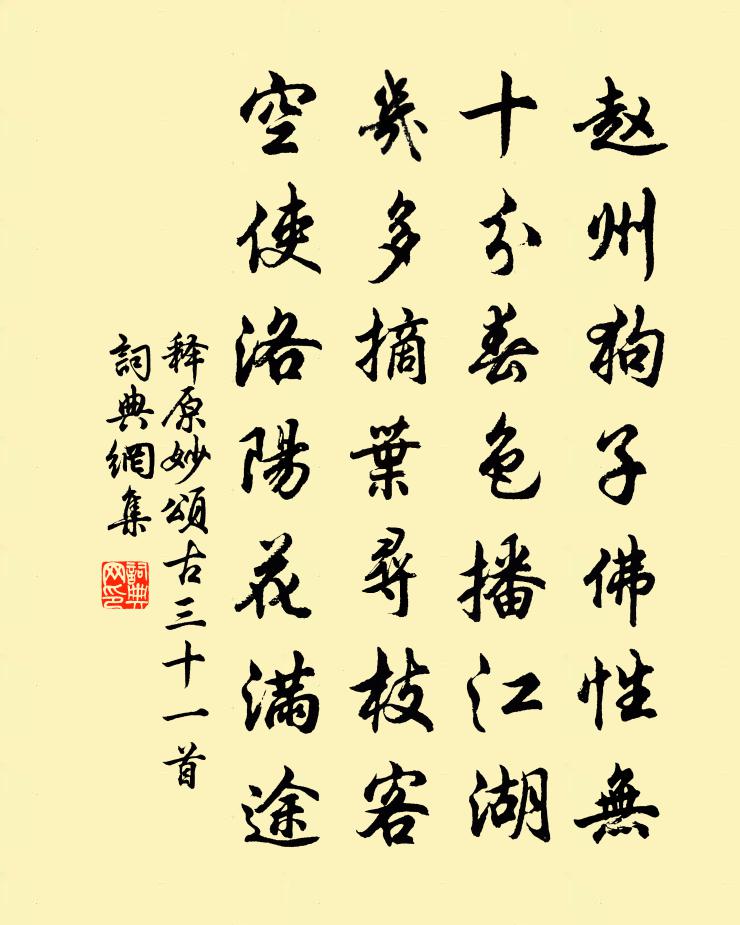 赵州狗子佛性無
十分春色播江湖
幾多摘葉尋枝客
空使洛陽花滿途
释原妙頌古三十一首
詞典網集
詞典网印